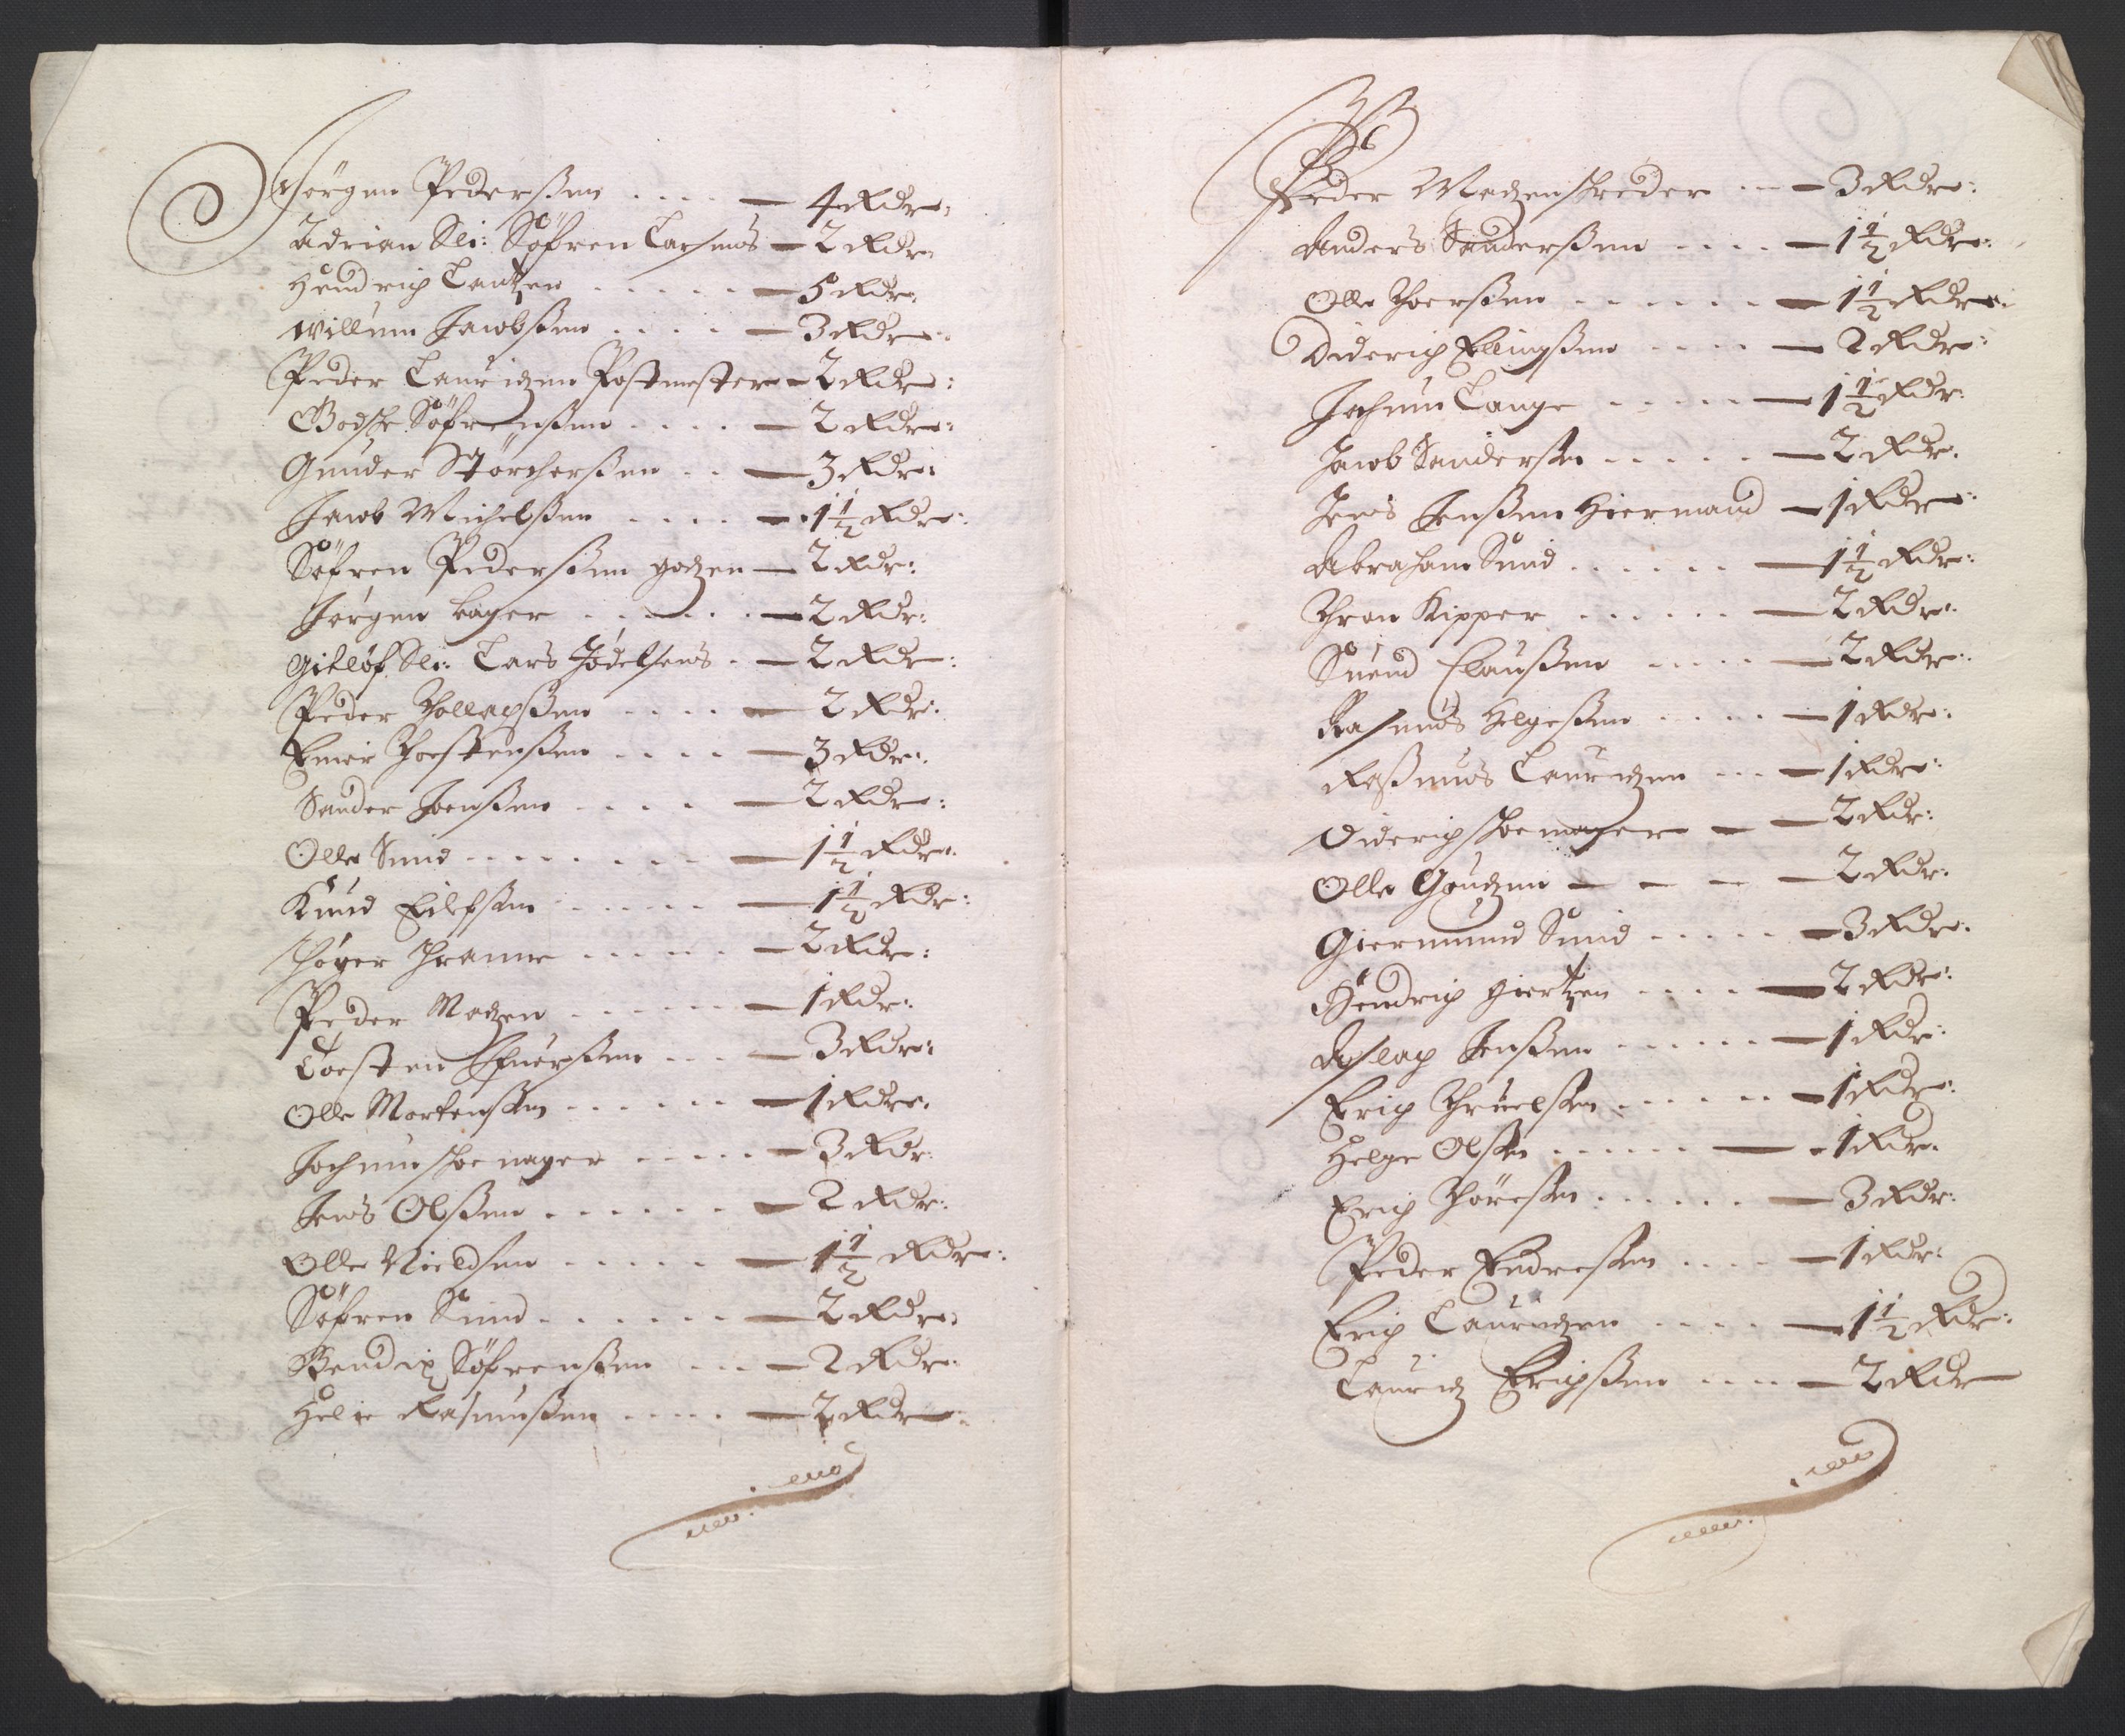 Jörgen Pederßen .... — 4 Rdr:
Adrian Sli: Söfren Larsens — 2 Rdr:
Hendrich Lantzen ..... — 5 Rdr:
Willum Jacobßen .... — 3 Rdr:
Peder Lauridzen Postmester — 2 Rdr:
Godske Söfrenßen .... — 2 Rdr:
Gunder Störcherßen .. — 3 Rdr:
Jacob Michelßen .... — 1 1/2 Rdr:
Söfren Pederßen godzen — 2 Rdr:
Jörgen bager ..... — 2 Rdr:
Gitlöf Sli: Lars Jödelsens . — 2 Rdr:
Peder Thollachßen .... — 2 Rdr:
Einer Thorstenßen .... — 3 Rdr:
Sander Joenßen .... — 2 Rdr:
Olle Sund ....... — 1 1/2 Rdr:
Knud Eilefsen ...... — 1 1/2 Rdr:
Thöger Thrane ..... — 2 Rdr:
Peder Madzen ..... — 1 Rdr:
Torsten Ifuerßen ... — 3 Rdr:
Olle Mortensen ..... — 1 Rdr:
Jochum skoemager ..... — 3 Rdr:
Jens Olßen ...... — 2 Rdr:
Olle Nieldsen ..... — 1 1/2 Rdr:
Söfren Sund ...... — 2 Rdr:
Bendix Söfrensen ... — 2 Rdr:
Helie Rasmusßen .... — 2 Rdr:
Peder Madzen skreder .. — 3 Rdr:
Anders Sanderßen .... — 1 1/2 Rdr:
Olle Thorßen ...... — 1 1/2 Rdr:
Diderich Ellingßen .... — 2 Rdr:
Jochum Lange ..... — 1 1/2 Rdr:
Jacob Sandersen ..... — 2 Rdr:
Jens Jenßen Hiermand — 1 Rdr:
Abraham Sund ...... — 1 1/2 Rdr:
Thron Kipper ...... — 2 Rdr:
Suend Claußen ..... — 2 Rdr:
Rasmus Helgeßen ..... — 1 Rdr:
Raßmus Lauridzen ... — 1 Rdr:
Diderich skoemager — — 2 Rdr:
Olle Goudzen — — — — 2 Rdr:
Giermund Sund ..... — 3 Rdr:
Hendrich giertzen .... — 2 Rdr:
Aslag Jenßen ...... — 1 Rdr:
Erich Thruelsen ...... — 1 Rdr:
Helge Olsen ...... — 1 Rdr:
Erich Thöresen ...... — 3 Rdr:
Peder Endresen .... — 1 Rdr:
Erich Lauridzen .... — 1 1/2 Rdr:
Lauridz Erichßen .... — 2 Rdr